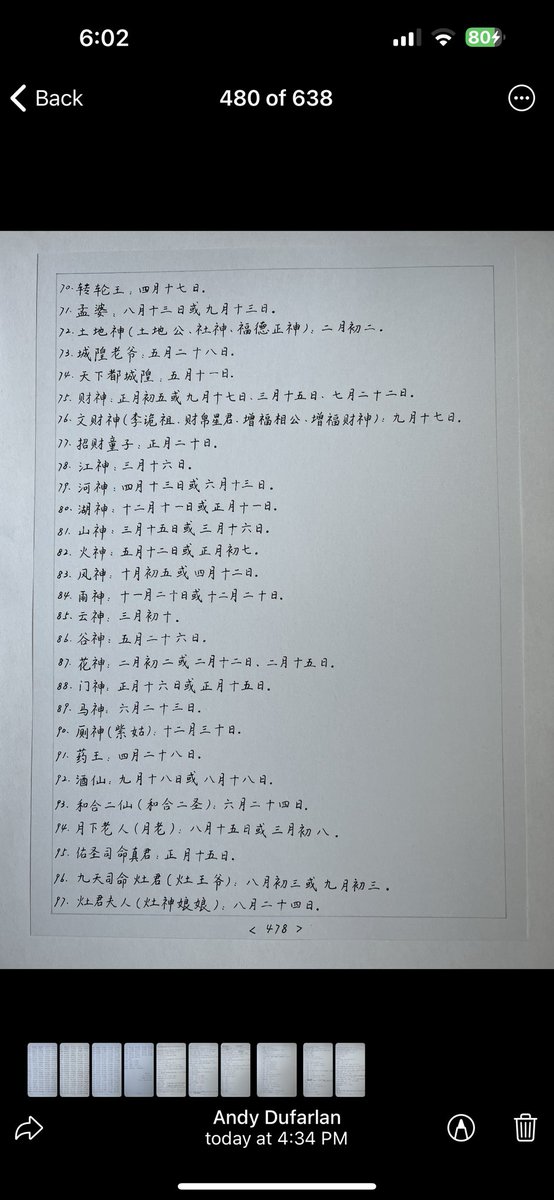 6:02
80
Back
480 of 638
70. 转轮王：四月十七日。
71. 孟婆：八月十三日或九月十三日。
72. 土地神（土地公、社神、福德正神）：二月初二。
73. 城隍老爷：五月二十八日。
74. 天下都城隍：五月十一日。
75. 财神：正月初五或九月十七日、三月十五日、七月二十二日。
76. 文财神（李诡祖、财帛星君、增福相公、增福财神）：九月十七日。
77. 招财童子：正月二十日。
78. 江神：三月十六日。
79. 河神：四月十三日或六月十三日。
80. 湖神：十二月十一日或正月十一日。
81. 山神：三月十五日或三月十六日。
82. 火神：五月十二日或正月初七。
83. 风神：十月初五或四月十二日。
84. 雨神：十一月二十日或十二月二十日。
85. 云神：三月初十。
86. 谷神：五月二十六日。
87. 花神：二月初二或二月十二日、二月十五日。
88. 门神：正月十六日或正月十五日。
89. 马神：六月二十三日。
90. 厕神（紫姑）：十二月三十日。
91. 药王：四月二十八日。
92. 酒仙：九月十八日或八月十八日。
93. 和合二仙（和合二圣）：六月二十四日。
94. 月下老人（月老）：八月十五日或三月初八。
95. 佑圣司命真君：正月十五日。
96. 九天司命灶君（灶王爷）：八月初三或九月初三。
97. 灶君夫人（灶神娘娘）：八月二十四日。
< 478 >
Andy Dufarlan
today at 4:34 PM